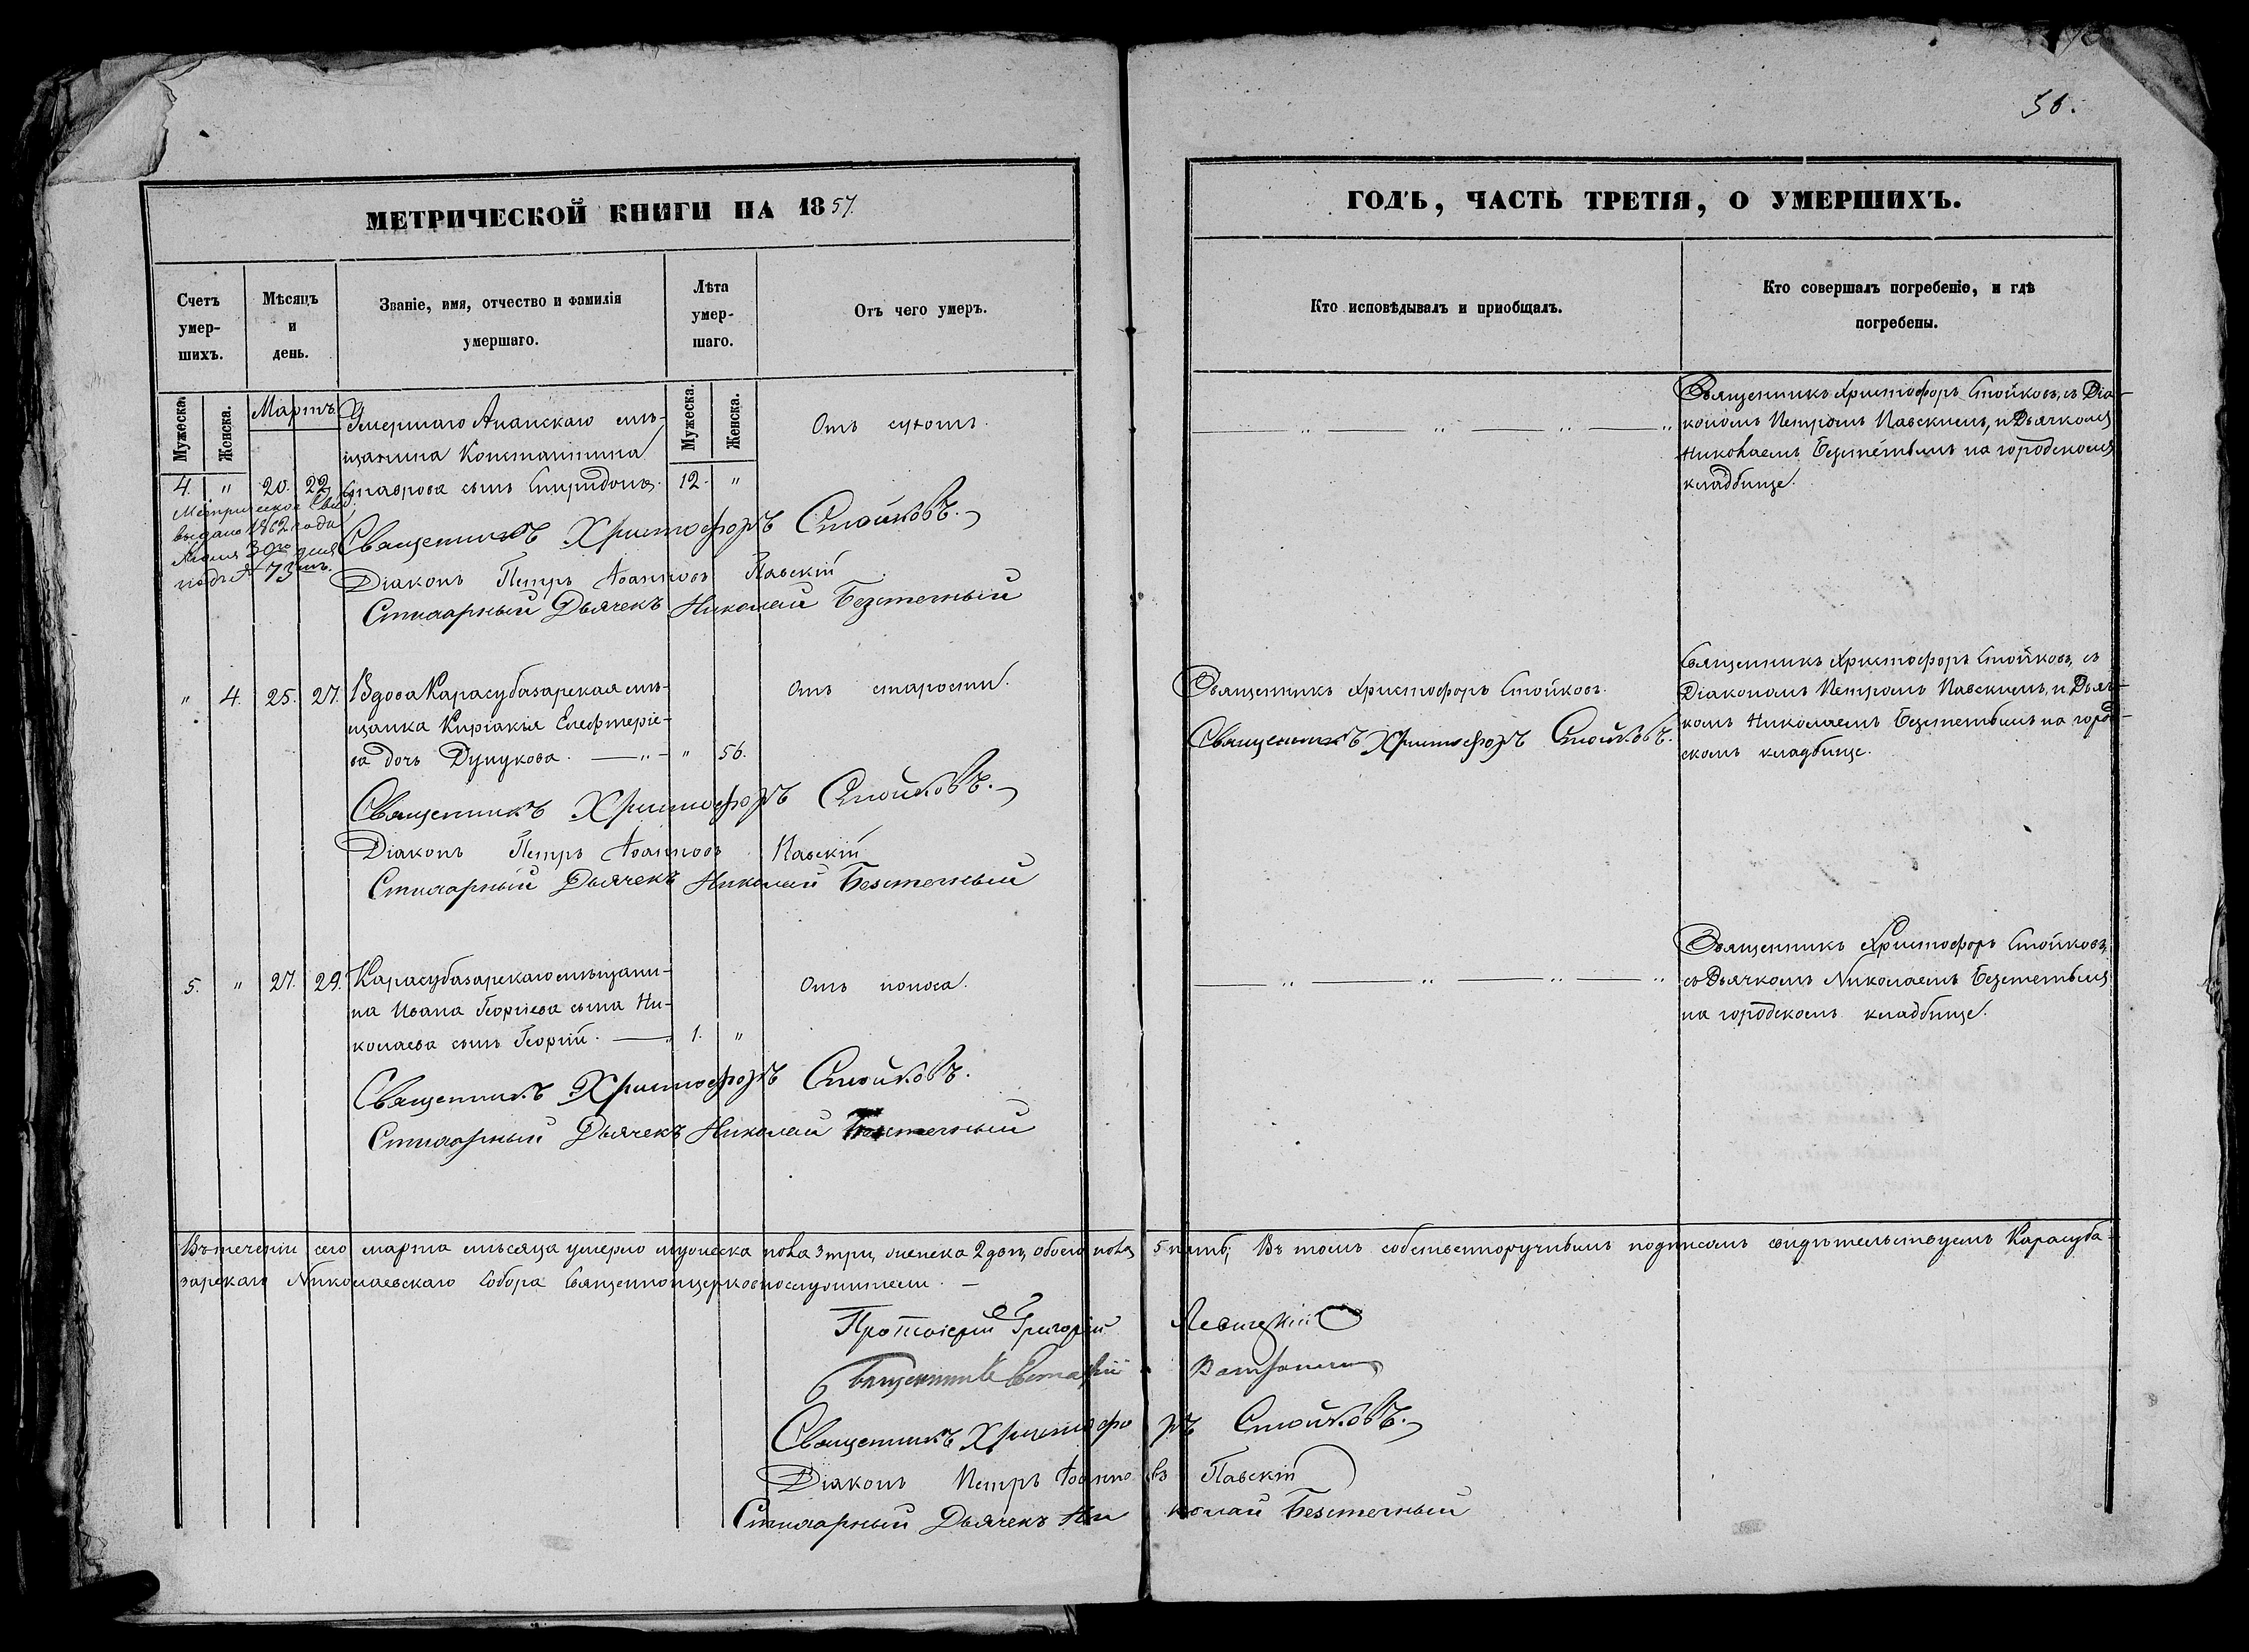 56.
МЕТРИЧЕСКОЙ КНИГИ НА 1857.
ГОДЪ, ЧАСТЬ ТРЕТІЯ, О УМЕРШИХЪ.
Счетъ умер-шихъ.
Мѣсяцъ и день.
Званіе, имя, отчество и фамилія умершаго.
Лѣта умер-шаго.
Отъ чего умеръ.
Кто исповѣдывалъ и пріобщалъ.
Кто совершалъ погребеніе, и гдѣ погребены.
Мужеска. Женска.
Мартъ
Мужеска. Женска.
Умершаго Анапскаго мѣ-
щанина Константина
4. " 20. 22. Ставрова сынъ Спиридонъ. 12. "
Отъ сухотъ.
Метрическое Свид.
выдано 1862 года
30го дня
подъ № 73мъ.
Священникъ Христофоръ Стойковъ.
Діаконъ Петръ Іоанновъ Павскій
Стихарный Дьячекъ Николай Безстечный
Священникъ Христофоръ Стойковъ, съ Діа-
кономъ Петромъ Павскимъ, и Дьячкомъ
Николаемъ на городскомъ
кладбище.
" 4. 25. 27. Вдова Карасубазарская мѣ-
щанка Киріакія Елефтеріе-
ва дочь Дунукова. " 56.
Отъ старости.
Священникъ Христофоръ Стойковъ.
Діаконъ Петръ Іоанновъ Павскій
Стихарный Дьячекъ Николай Безстечный
Священникъ Христофоръ Стойковъ.
Священникъ Христофоръ Стойковъ.
Священникъ Христофоръ Стойковъ, съ
Діакономъ Петромъ Павскимъ, и Дьяч-
комъ Николаемъ на город-
скомъ кладбище.
5. " 27. 29. Карасубазарскаго мѣщани-
на Ивана Георгіева сына Ни-
колаева сынъ Георгій. 1. "
Отъ поноса.
Священникъ Христофоръ Стойковъ.
Стихарный Дьячекъ Николай Безстечный
Священникъ Христофоръ Стойковъ,
съ Дьячкомъ Николаемъ
на городскомъ кладбище.
Въ теченіи сего марта мѣсяца умерло мужеска пола 3 три, женска 2 двѣ, обоего пола 5 пять; Въ томъ собственноручнымъ подписомъ свидѣтельствуемъ Карасуба-
зарскаго Николаевскаго Собора Священноцерковнослужители. —
Протоіерей Григорій Левицкій
Священникъ
Священникъ Христофоръ Стойковъ.
Діаконъ Петръ Іоанновъ Павскій
Стихарный Дьячекъ Николай Безстечный